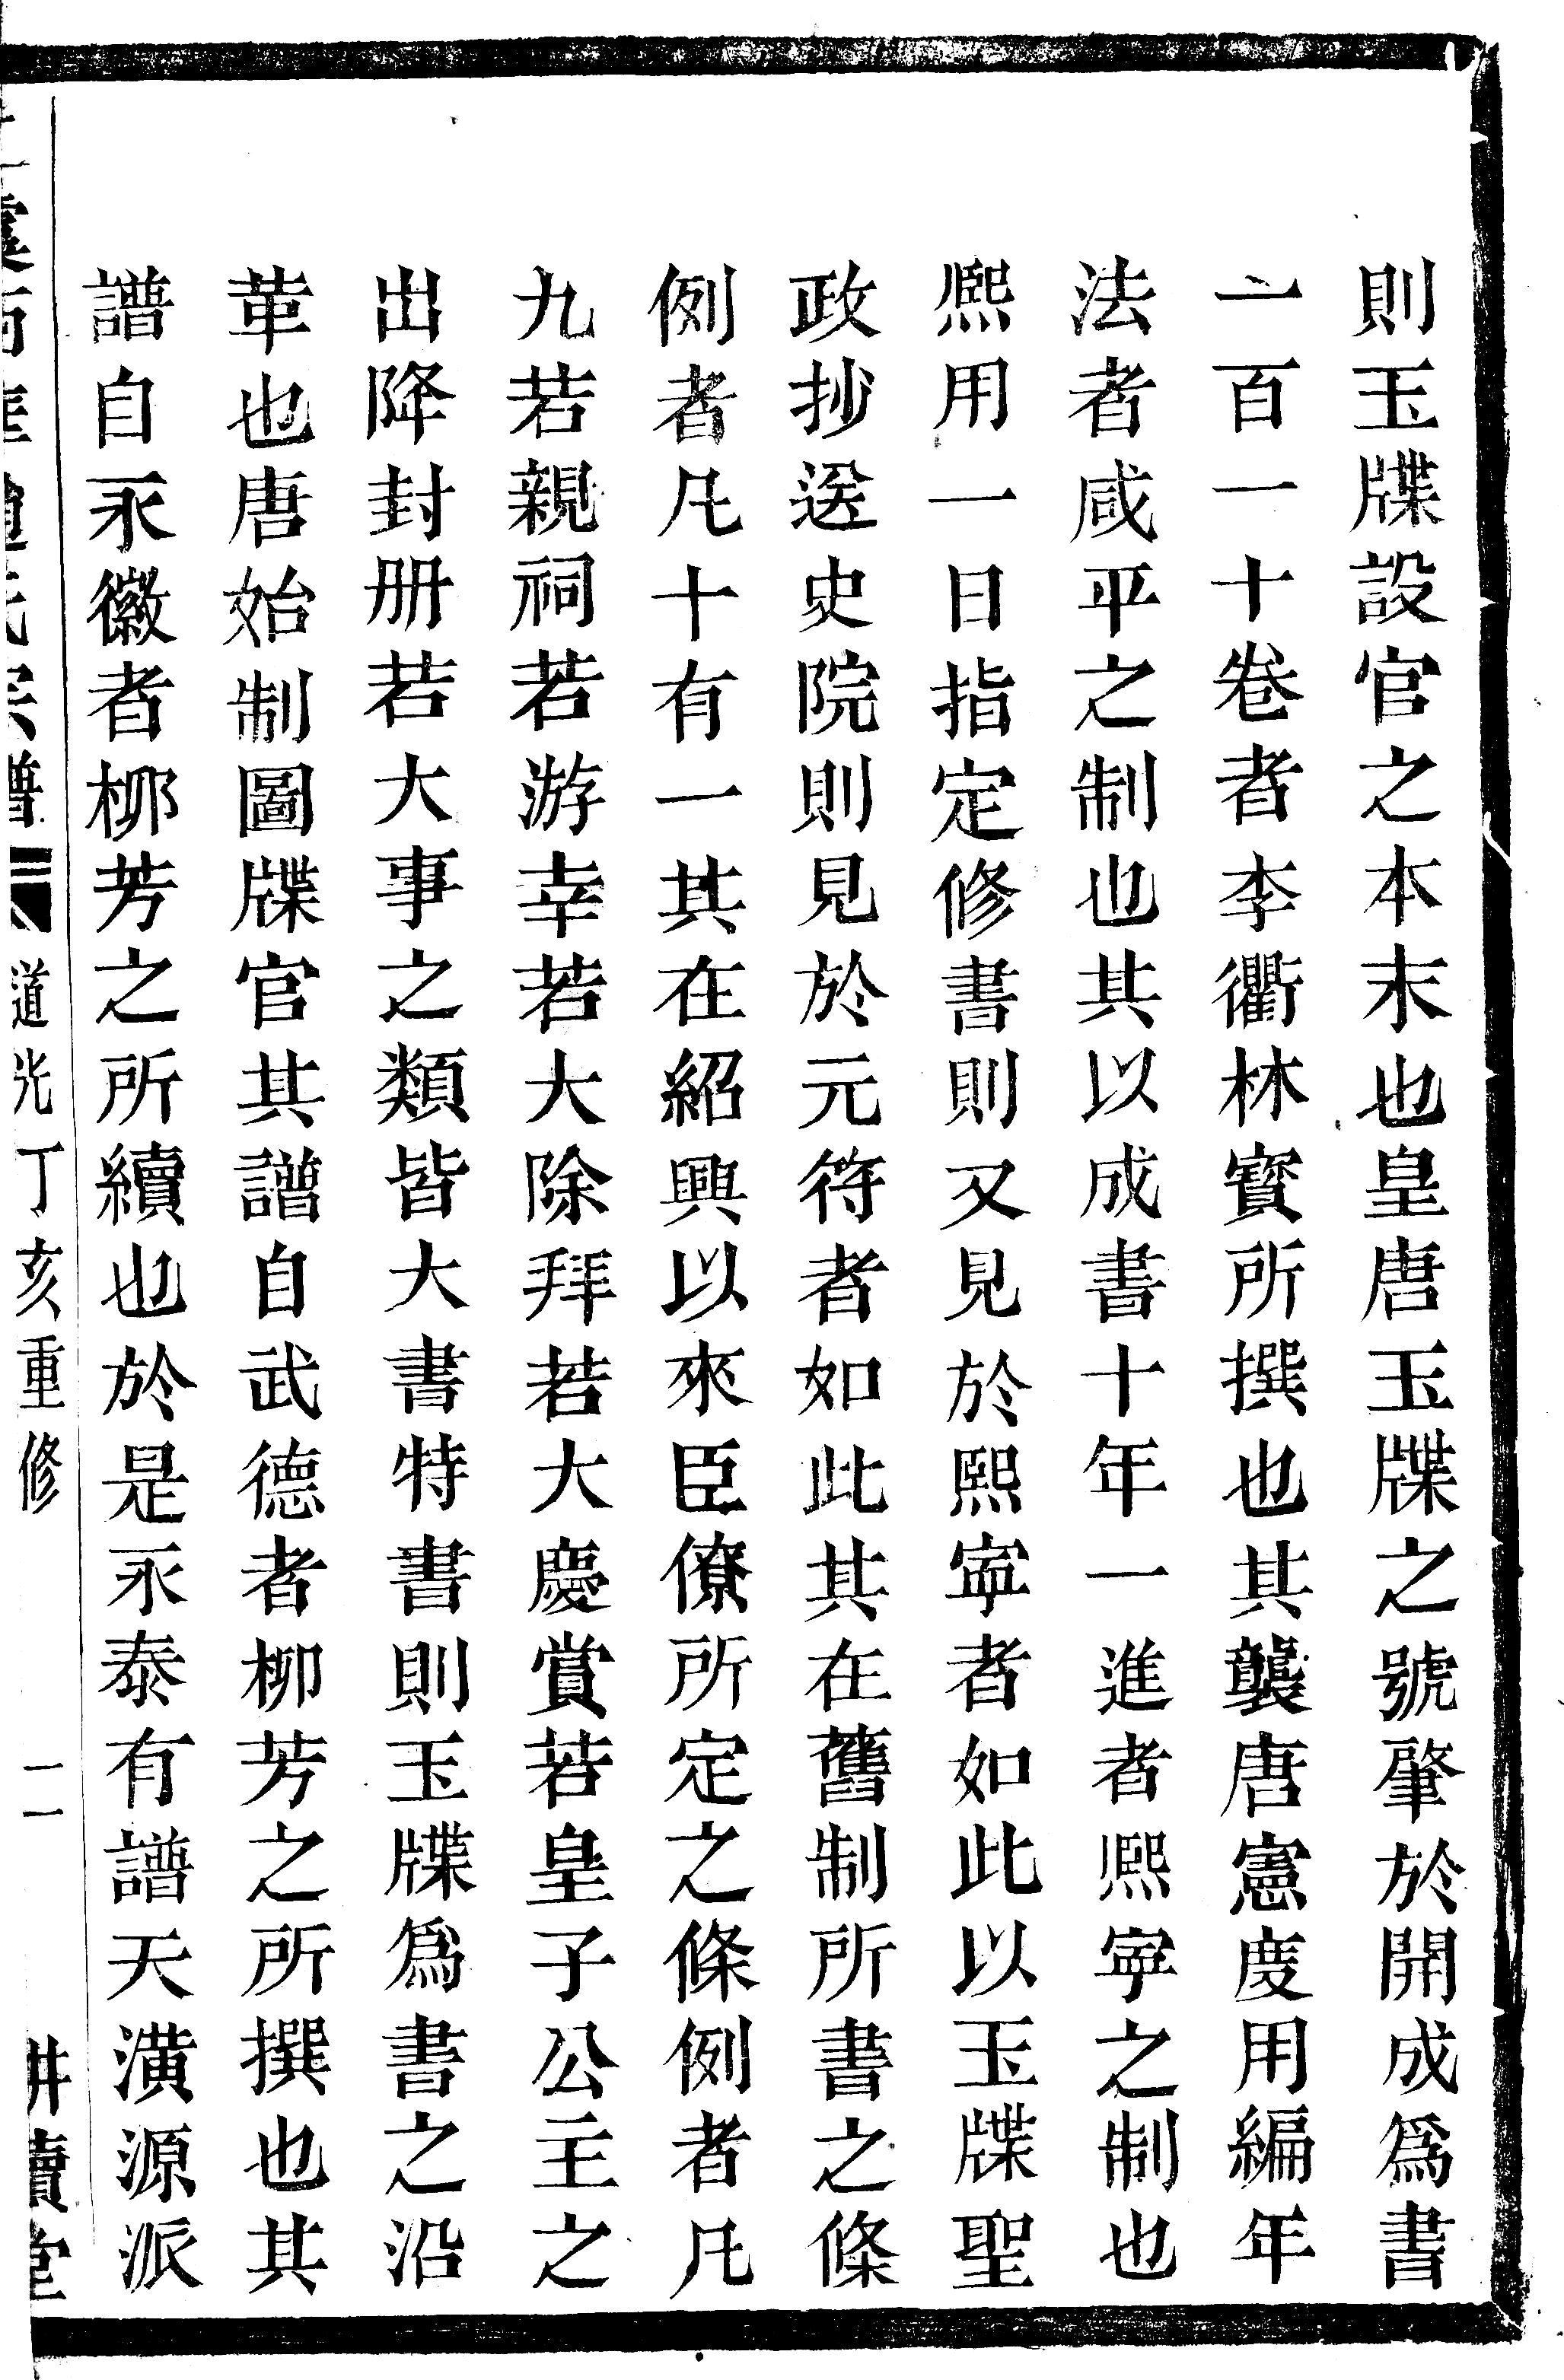 則玉牒設官之本末也皇唐玉牒之號肇於開成爲書
一百一十卷者李衢林寳所撰也其襲唐憲度用編年
法者咸平之制也其以成書十年一進者熈寜之制也
熈用一日指定修書則又見於熈寜者如此以玉牒聖
政抄送史院則見於元符者如此其在舊制所書之條
例者凡十有一其在紹興以來臣僚所定之條例者凡
九若親祠若游幸若大除拜若大慶賞若皇子公主之
出降封册若大事之類皆大書特書則玉牒爲書之沿
革也唐始制圖牒官其譜自武德者柳芳之所撰也其
譜自永徽者栁芳之所續也於是永泰有譜天潢源派
趙氏宗譜 道光丁亥重修 二 耕讀堂